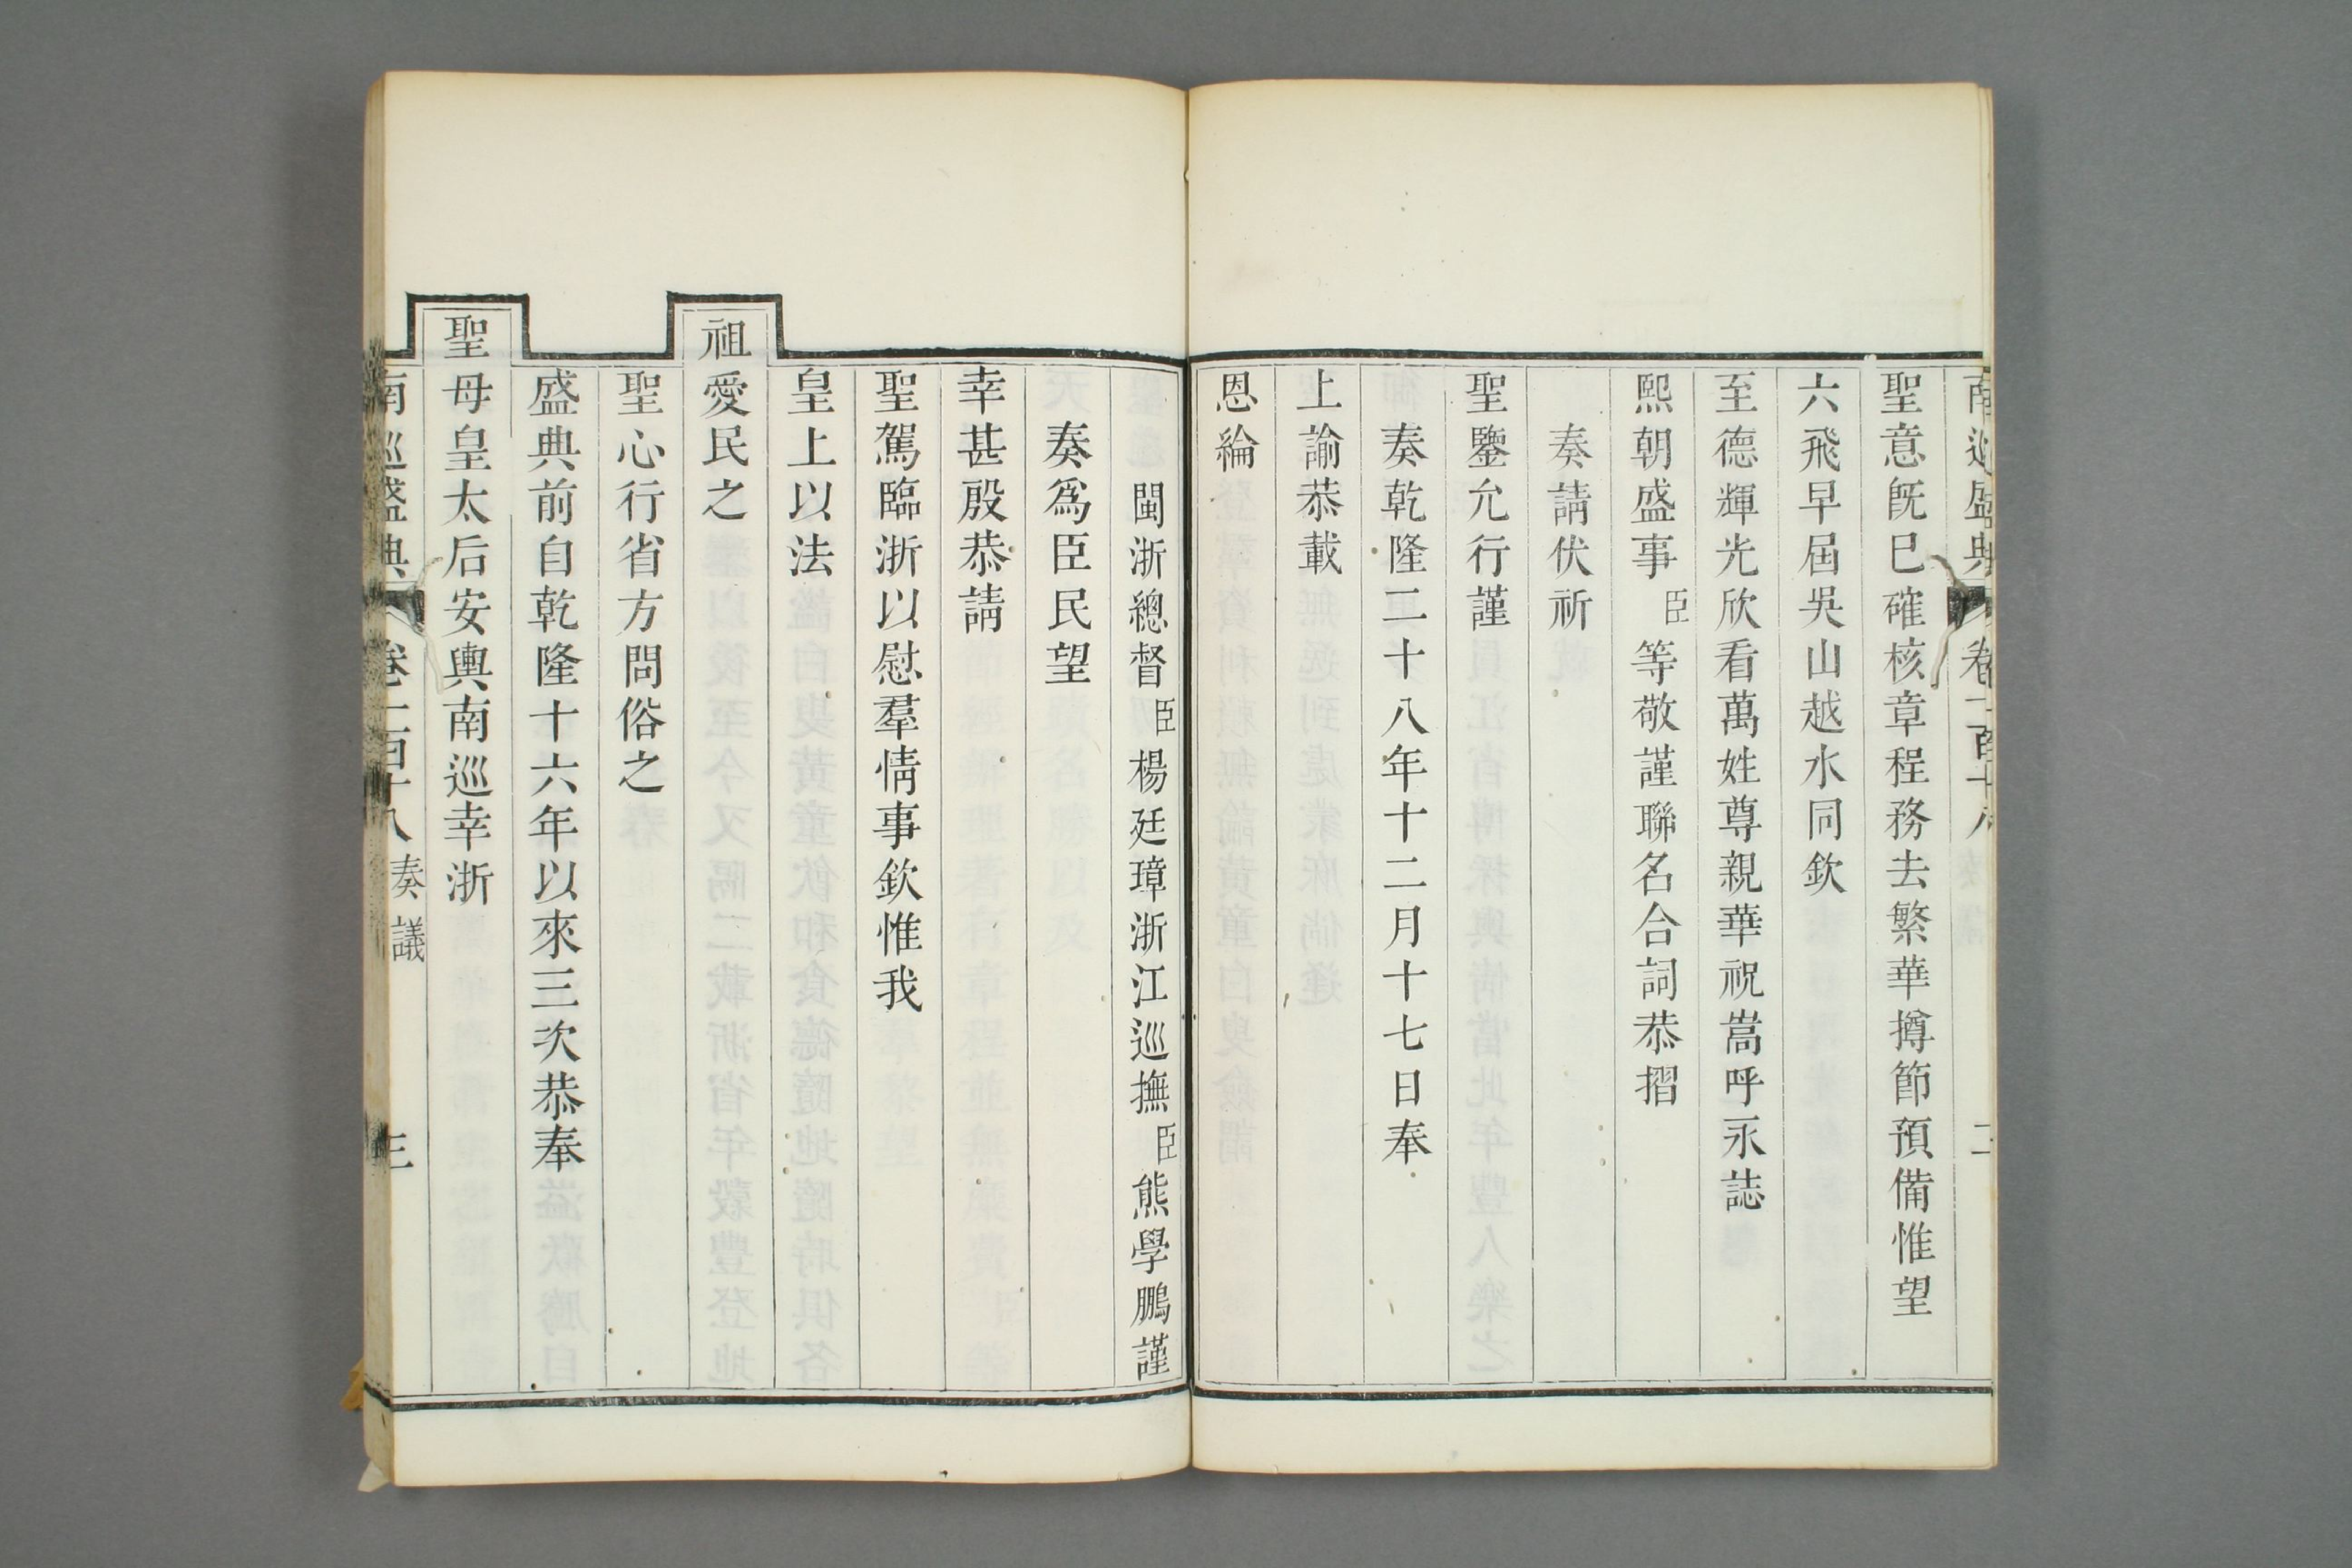 南巡盛典 卷一百十八 二
聖意旣巳確核章程務去繁華撙節預備惟望
六飛早屆吳山越水同欽
至德輝光欣看萬姓尊親華祝嵩呼永誌
熙朝盛事臣等敬謹聯名合詞恭摺
奏請伏祈
聖鑒允行謹
奏乾隆二十八年十二月十七日奉
上諭恭載
恩綸
閩浙總督臣楊廷璋浙江巡撫臣熊學鵬謹
奏爲臣民望
幸甚殷恭請
聖駕臨浙以慰羣情事欽惟我
皇上以法
祖愛民之
聖心行省方問俗之
盛典前自乾隆十六年以來三次恭奉
聖母皇太后安輿南巡幸浙
南巡盛典 卷一百十八 奏議 三